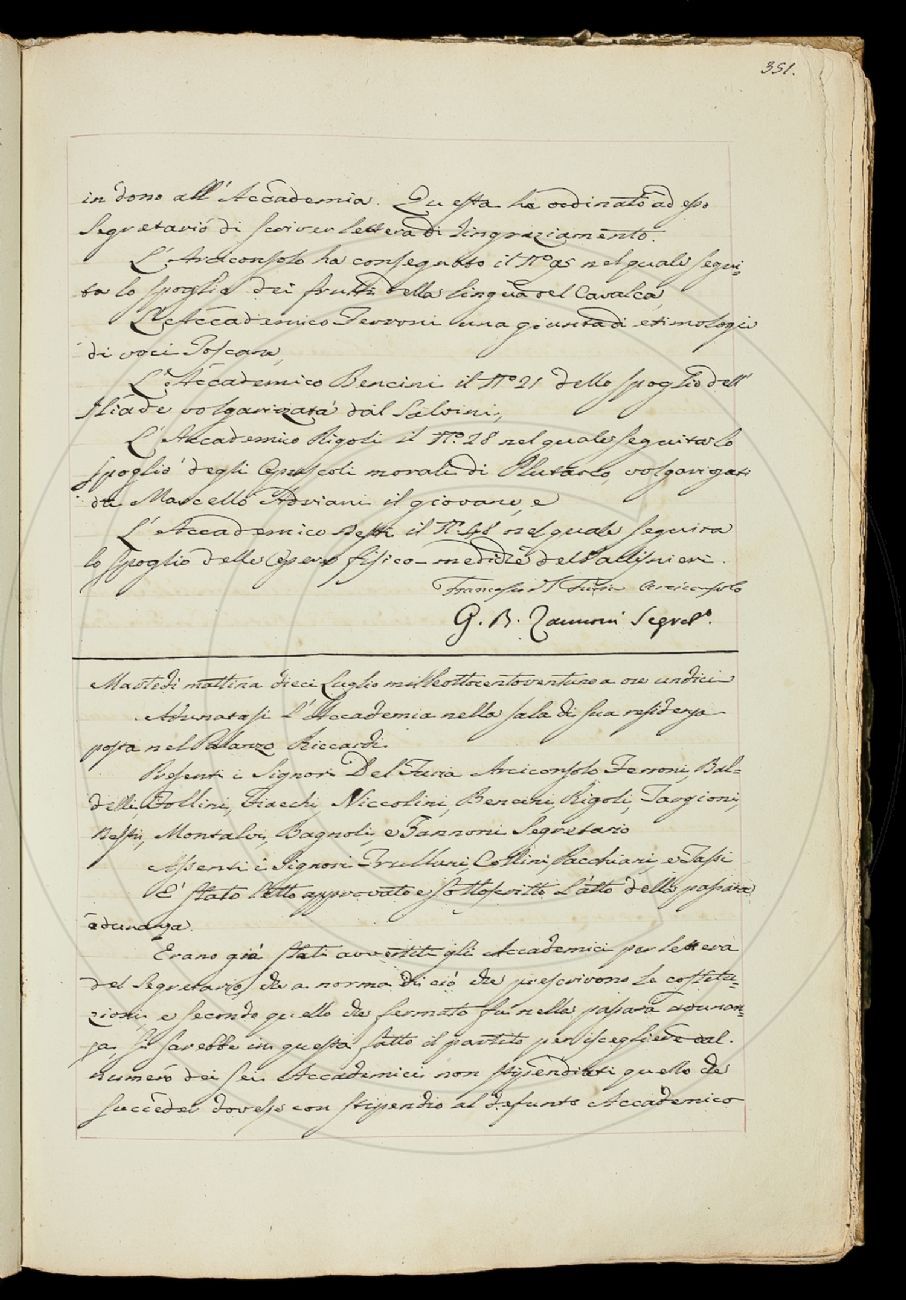 351.
in dono all'Accademia. Questa ha ordinato ad esso
Segretario di scriver lettera di ringraziamento.
L'Arciconsolo ha consegnato il N.º 95 nel quale segui-
ta lo spoglio dei frutti della lingua del Cavalca
L'Accademico Ferroni una giunta di etimologie
di voci Toscane,
L'Accademico Bencini il N.º 21 dello spoglio dell'
Iliade volgarizzata dal Salvini,
L'Accademico Rigoli il N.º 28 nel quale seguita lo
spoglio degli Opuscoli morali di Plutarco, volgarizzati
da Marcello Adriani il giovane, e
L'Accademico Bessi il N.º 48 nel quale seguita
lo spoglio delle Opere fisico-mediche del Vallisnieri.
Francesco del Furia Arciconsolo
G. B. Zannoni Segret.º
Martedì mattina dieci Luglio milleottocentoventuno a ore undici
Adunatasi l'Accademia nella sala di sua residenza
posta nel Palazzo Riccardi.
Presenti i Signori Del Furia Arciconsolo, Ferroni, Bal-
delli, Follini, Fiacchi, Niccolini, Bencini, Rigoli, Targioni,
Bessi, Montalvi, Bagnoli, e Zannoni Segretario
Assenti i Signori Frullani, Collini, Pacchiani, e Tassi
È stato letto approvato e sottoscritto l'atto della passata
adunanza.
Erano già stati avvertiti gli Accademici per lettera
del Segretario, che a norma di ciò che prescrivono le costitu-
zioni e secondo quello che fermato fu nella passata adunan-
za, si sarebbe in questa fatto il partito per iscegliere dal
numero dei sei Accademici non stipendiati quello che
succeder dovesse con stipendio al defunto Accademico